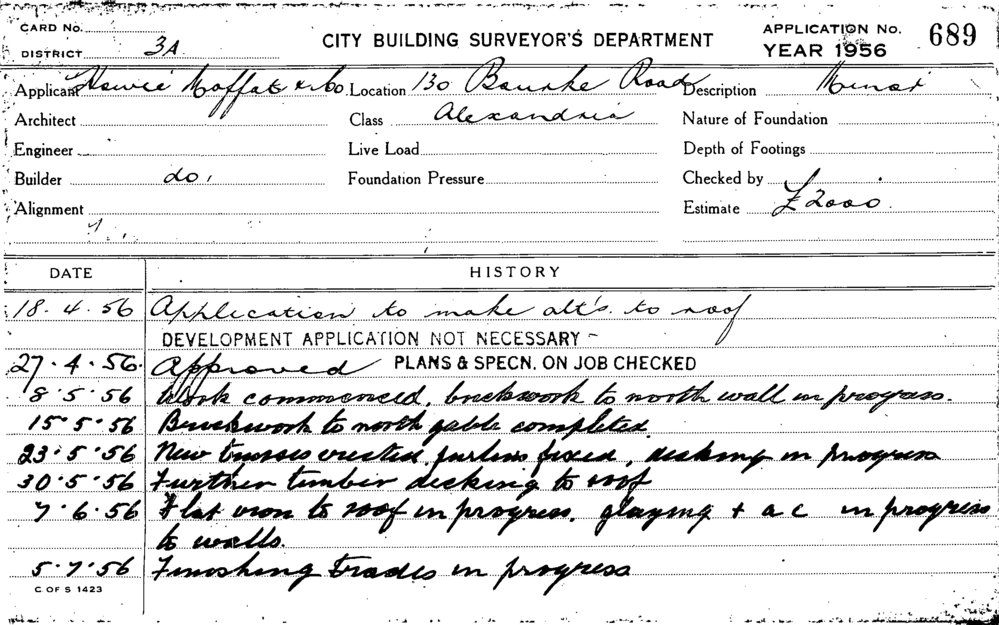 CARD No.
DISTRICT 3A
CITY BUILDING SURVEYOR'S DEPARTMENT
APPLICATION No. 689
YEAR 1956
Applicant Howie Moffat & Co Location 130 Bourke Road Description Minor
Architect Class Alexandria Nature of Foundation
Engineer Live Load Depth of Footings
Builder do. Foundation Pressure Checked by
Alignment Estimate £2000
DATE HISTORY
18.4.56 Application to make alt's. to roof
DEVELOPMENT APPLICATION NOT NECESSARY -
27.4.56. Approved PLANS & SPECN. ON JOB CHECKED
8.5.56 Work commenced, brickwork to north wall in progress.
15.5.56 Brickwork to north gable completed.
23.5.56 New trusses erected, purlins fixed, decking in progress
30.5.56 Further timber decking to roof
7.6.56 Flat iron to roof in progress. glazing + a c in progress
to walls.
5.7.56 Finishing trades in progress
C OF S 1423